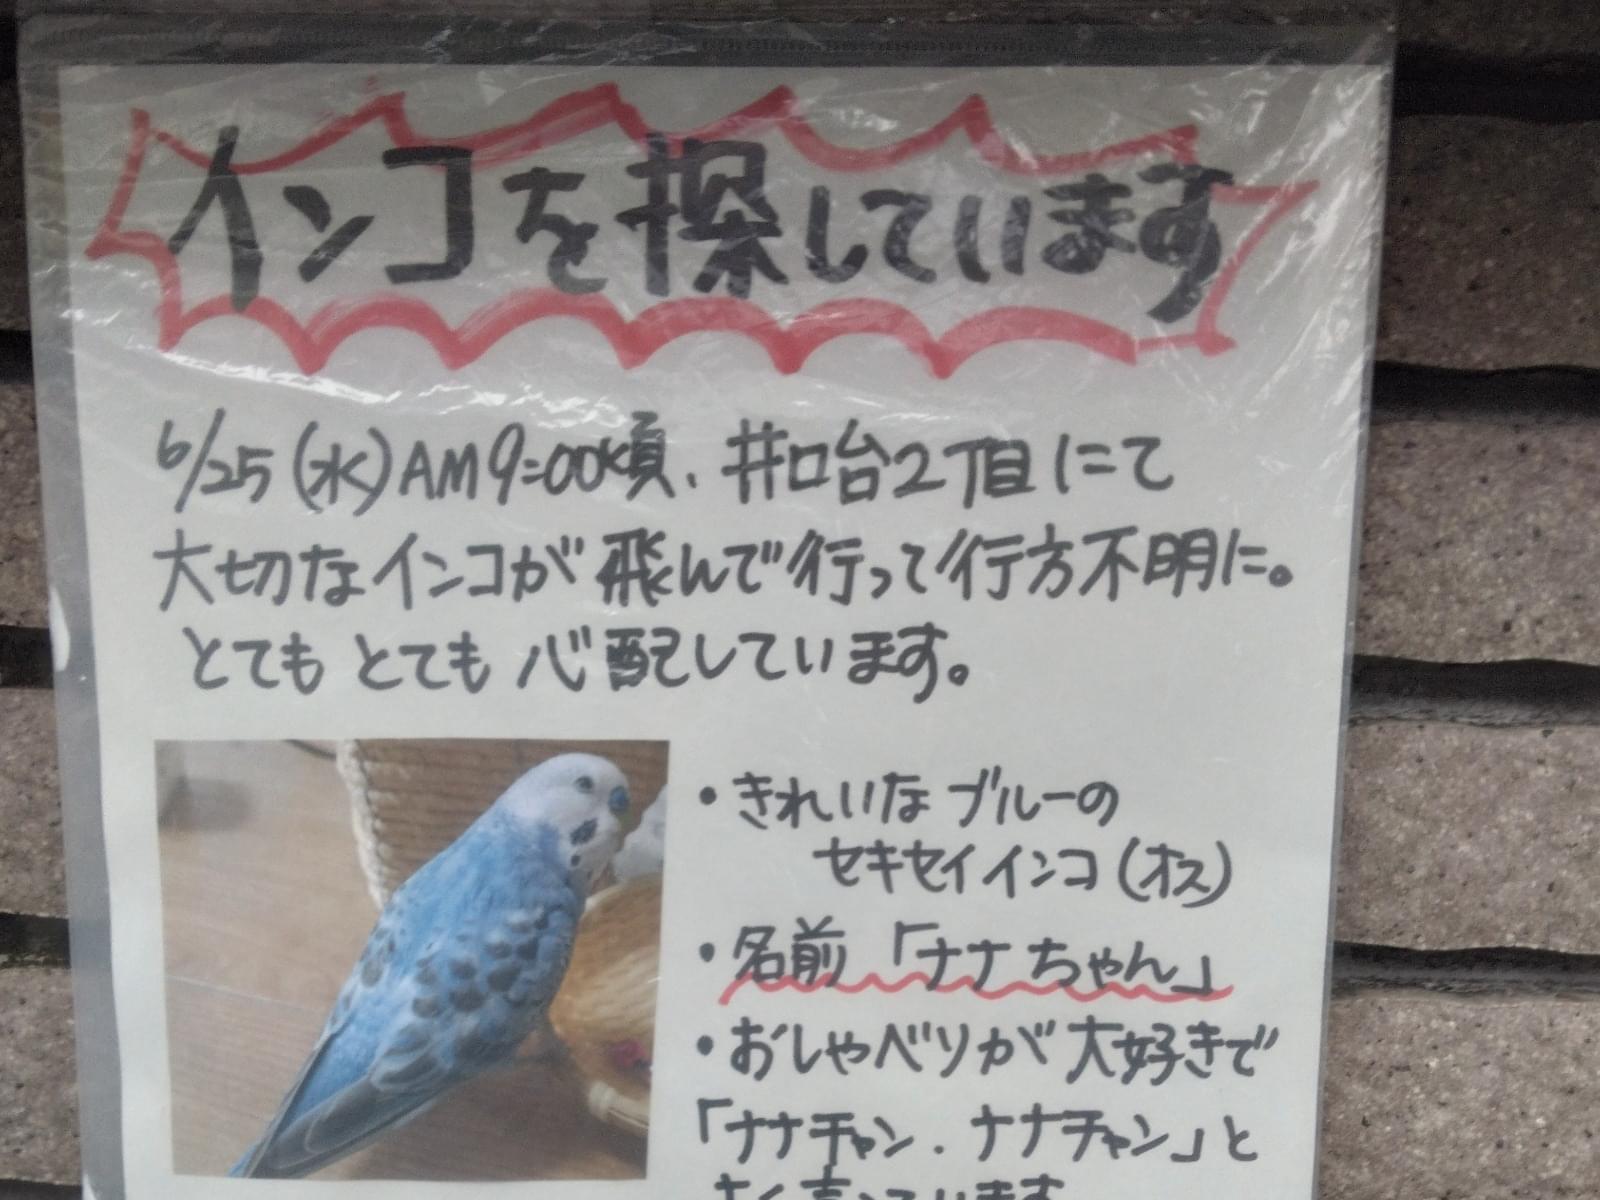 インコを探しています
6/25(水)AM9:00頃、井口台2丁目にて
大切なインコが飛んで行って行方不明に。
とてもとても心配しています。
・きれいなブルーの
セキセイインコ(オス)
・名前「ナナちゃん」
・おしゃべりが大好きで
「ナナチャン.ナナチャン」と
よく言っています